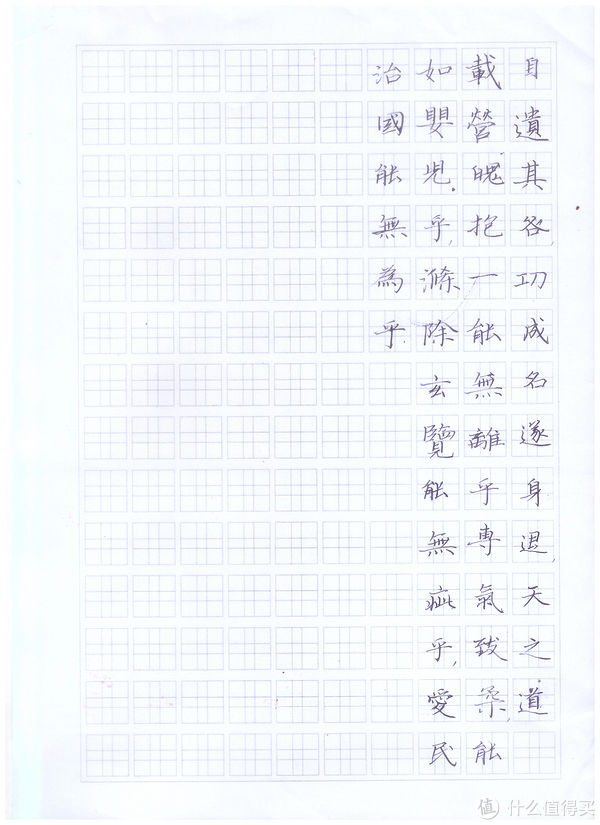 自遺其咎,功成名遂身退,天之道
載營魄抱一能無離乎專氣致柔,能
如嬰兒。乎,滌除玄覽能無疵乎,愛民
治國能無為乎.
值 什么值得买